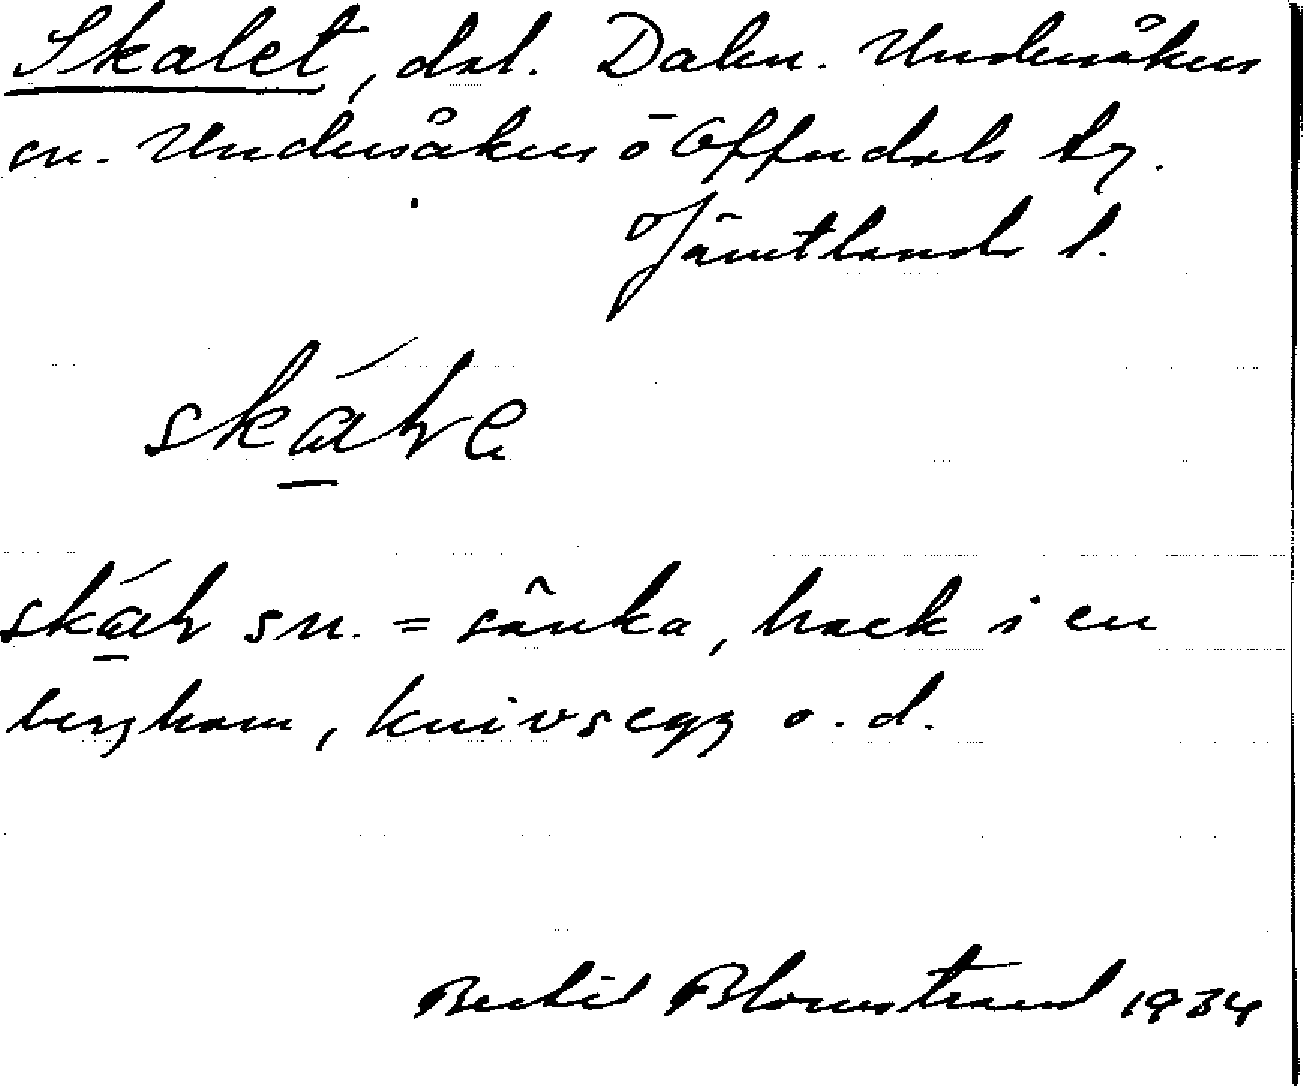 Skalet, dal. Dalen. Undersåkers
sn. Undersåkers o Offerdals tg.
Jämtlands l.
skálɛ
skál sn. = sänka, hack i en
bergkam, knivsegg o. d.
Bertil Blomstrand 1934